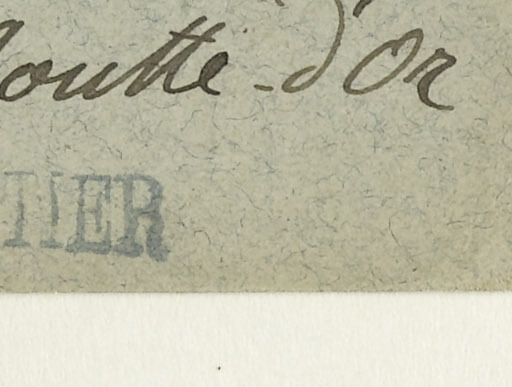 outte-d'Or
TIER